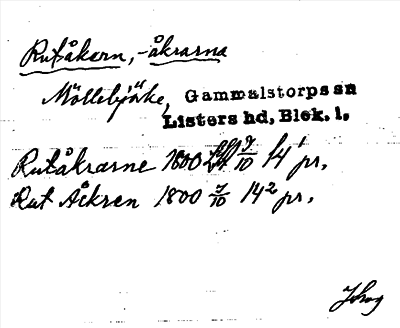 Rutåkern, -åkrarna
Möllebjörke, Gammalstorps sn
Listers hd, Blek. l.
Rutåkrarne 1800 9/10 14¹ pr.
Rut Åkren 1800 9/10 14² pr.